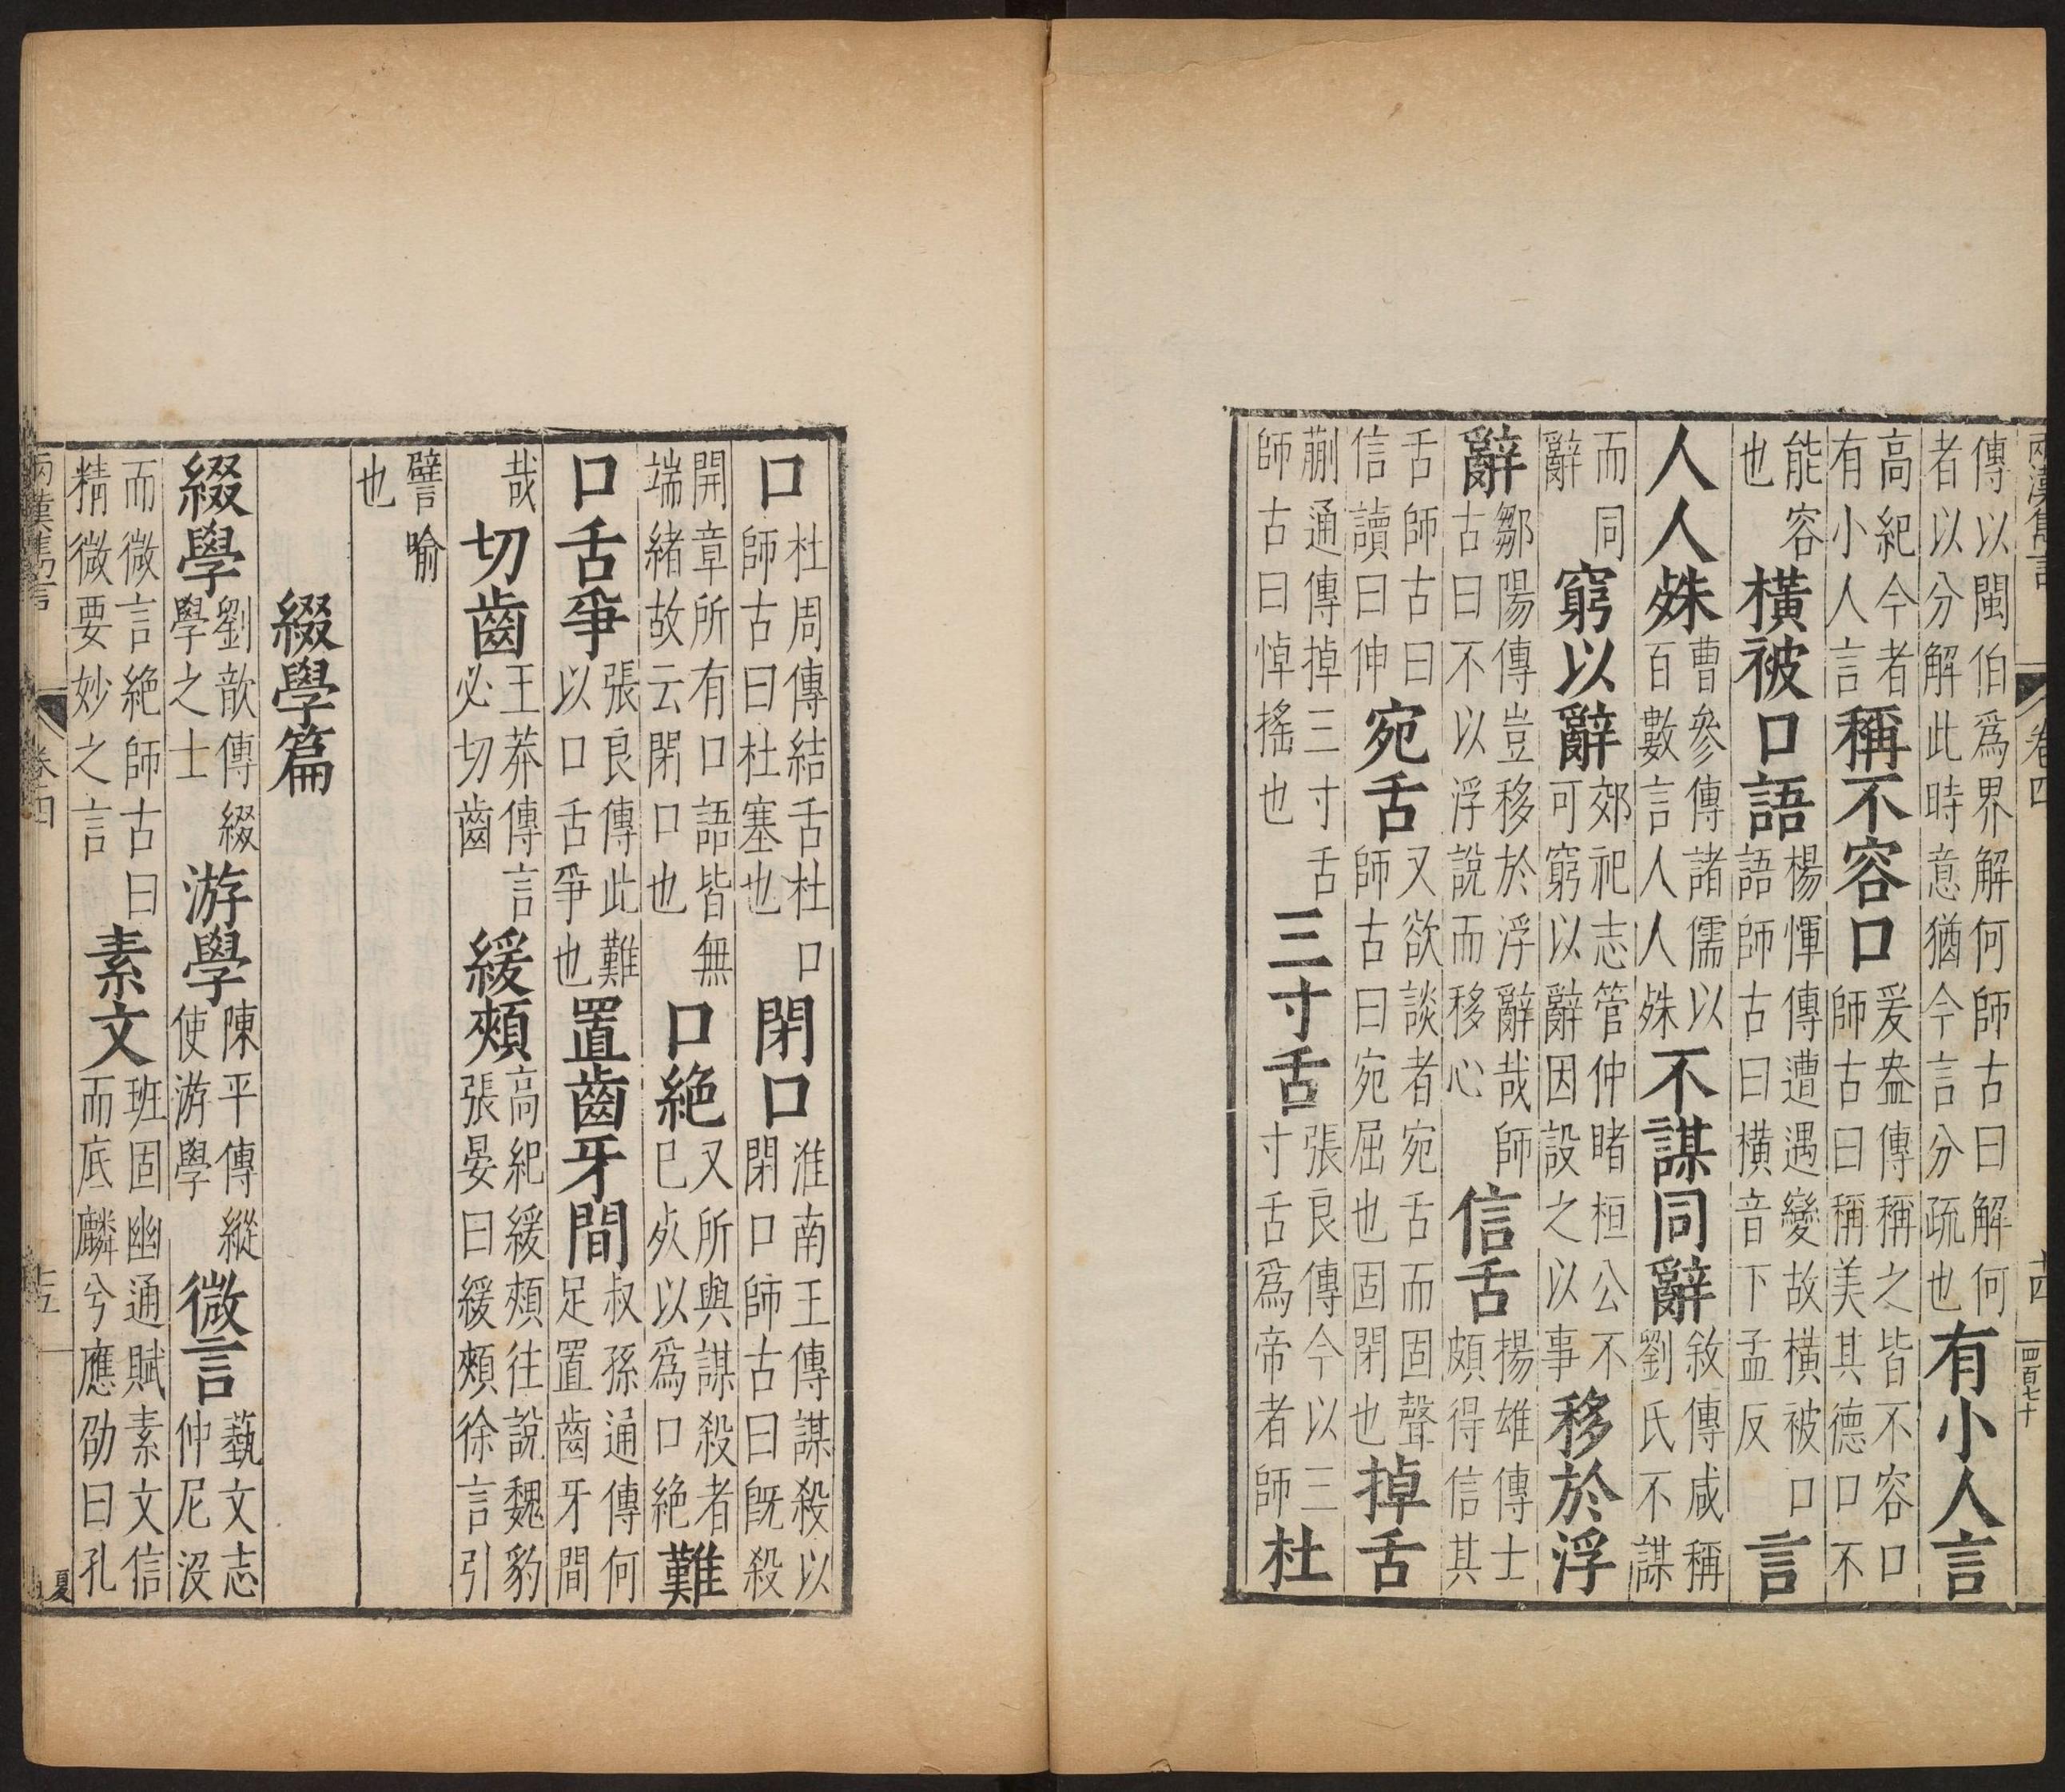 兩漢雋言
卷四
十四
四百七十
傳以閩伯爲界解何師古曰解何
者以分解此時意猶今言分疏也
有小人言
高紀今者
有小人言
稱不容口
爰盎傳稱之皆不容口
師古曰稱美其德口不
能容
也
橫被口語
楊惲傳遭遇變故橫被口
語師古曰橫音下孟反
言
人人殊
曹參傳諸儒以
百數言人人殊
不謀同辭
敘傳咸稱
劉氏不謀
而同
辭
窮以辭
郊祀志管仲睹桓公不
可窮以辭因設之以事
移於浮
辭
鄒陽傳豈移於浮辭哉師
古曰不以浮說而移心
信舌
揚雄傳士
頗得信其
舌師古曰
信讀曰伸
宛舌
又欲談者宛舌而固聲
師古曰宛屈也固閉也
掉舌
蒯通傳掉三寸舌
師古曰悼搖也
三寸舌
張良傳今以三
寸舌爲帝者師
杜
口
杜周傳結舌杜口
師古曰杜塞也
閉口
淮南王傳謀殺以
閉口師古曰旣殺
開章所有口語皆無
端緒故云閉口也
口絶
又所與謀殺者
已死以爲口絶
難
口舌爭
張良傳此難
以口舌爭也
置齒牙間
叔孫通傳何
足置齒牙間
哉
切齒
王莽傳言
必切齒
緩頰
高紀緩頰往說魏豹
張晏曰緩頰徐言引
譬喻
也
綴學篇
綴學
劉歆傳綴
學之士
游學
陳平傳縱
使游學
微言
藝文志
仲尼沒
而微言絶師古曰
精微要妙之言
素文
班固幽通賦素文信
而底麟兮應劭曰孔
兩漢雋言
卷四
十五
夏